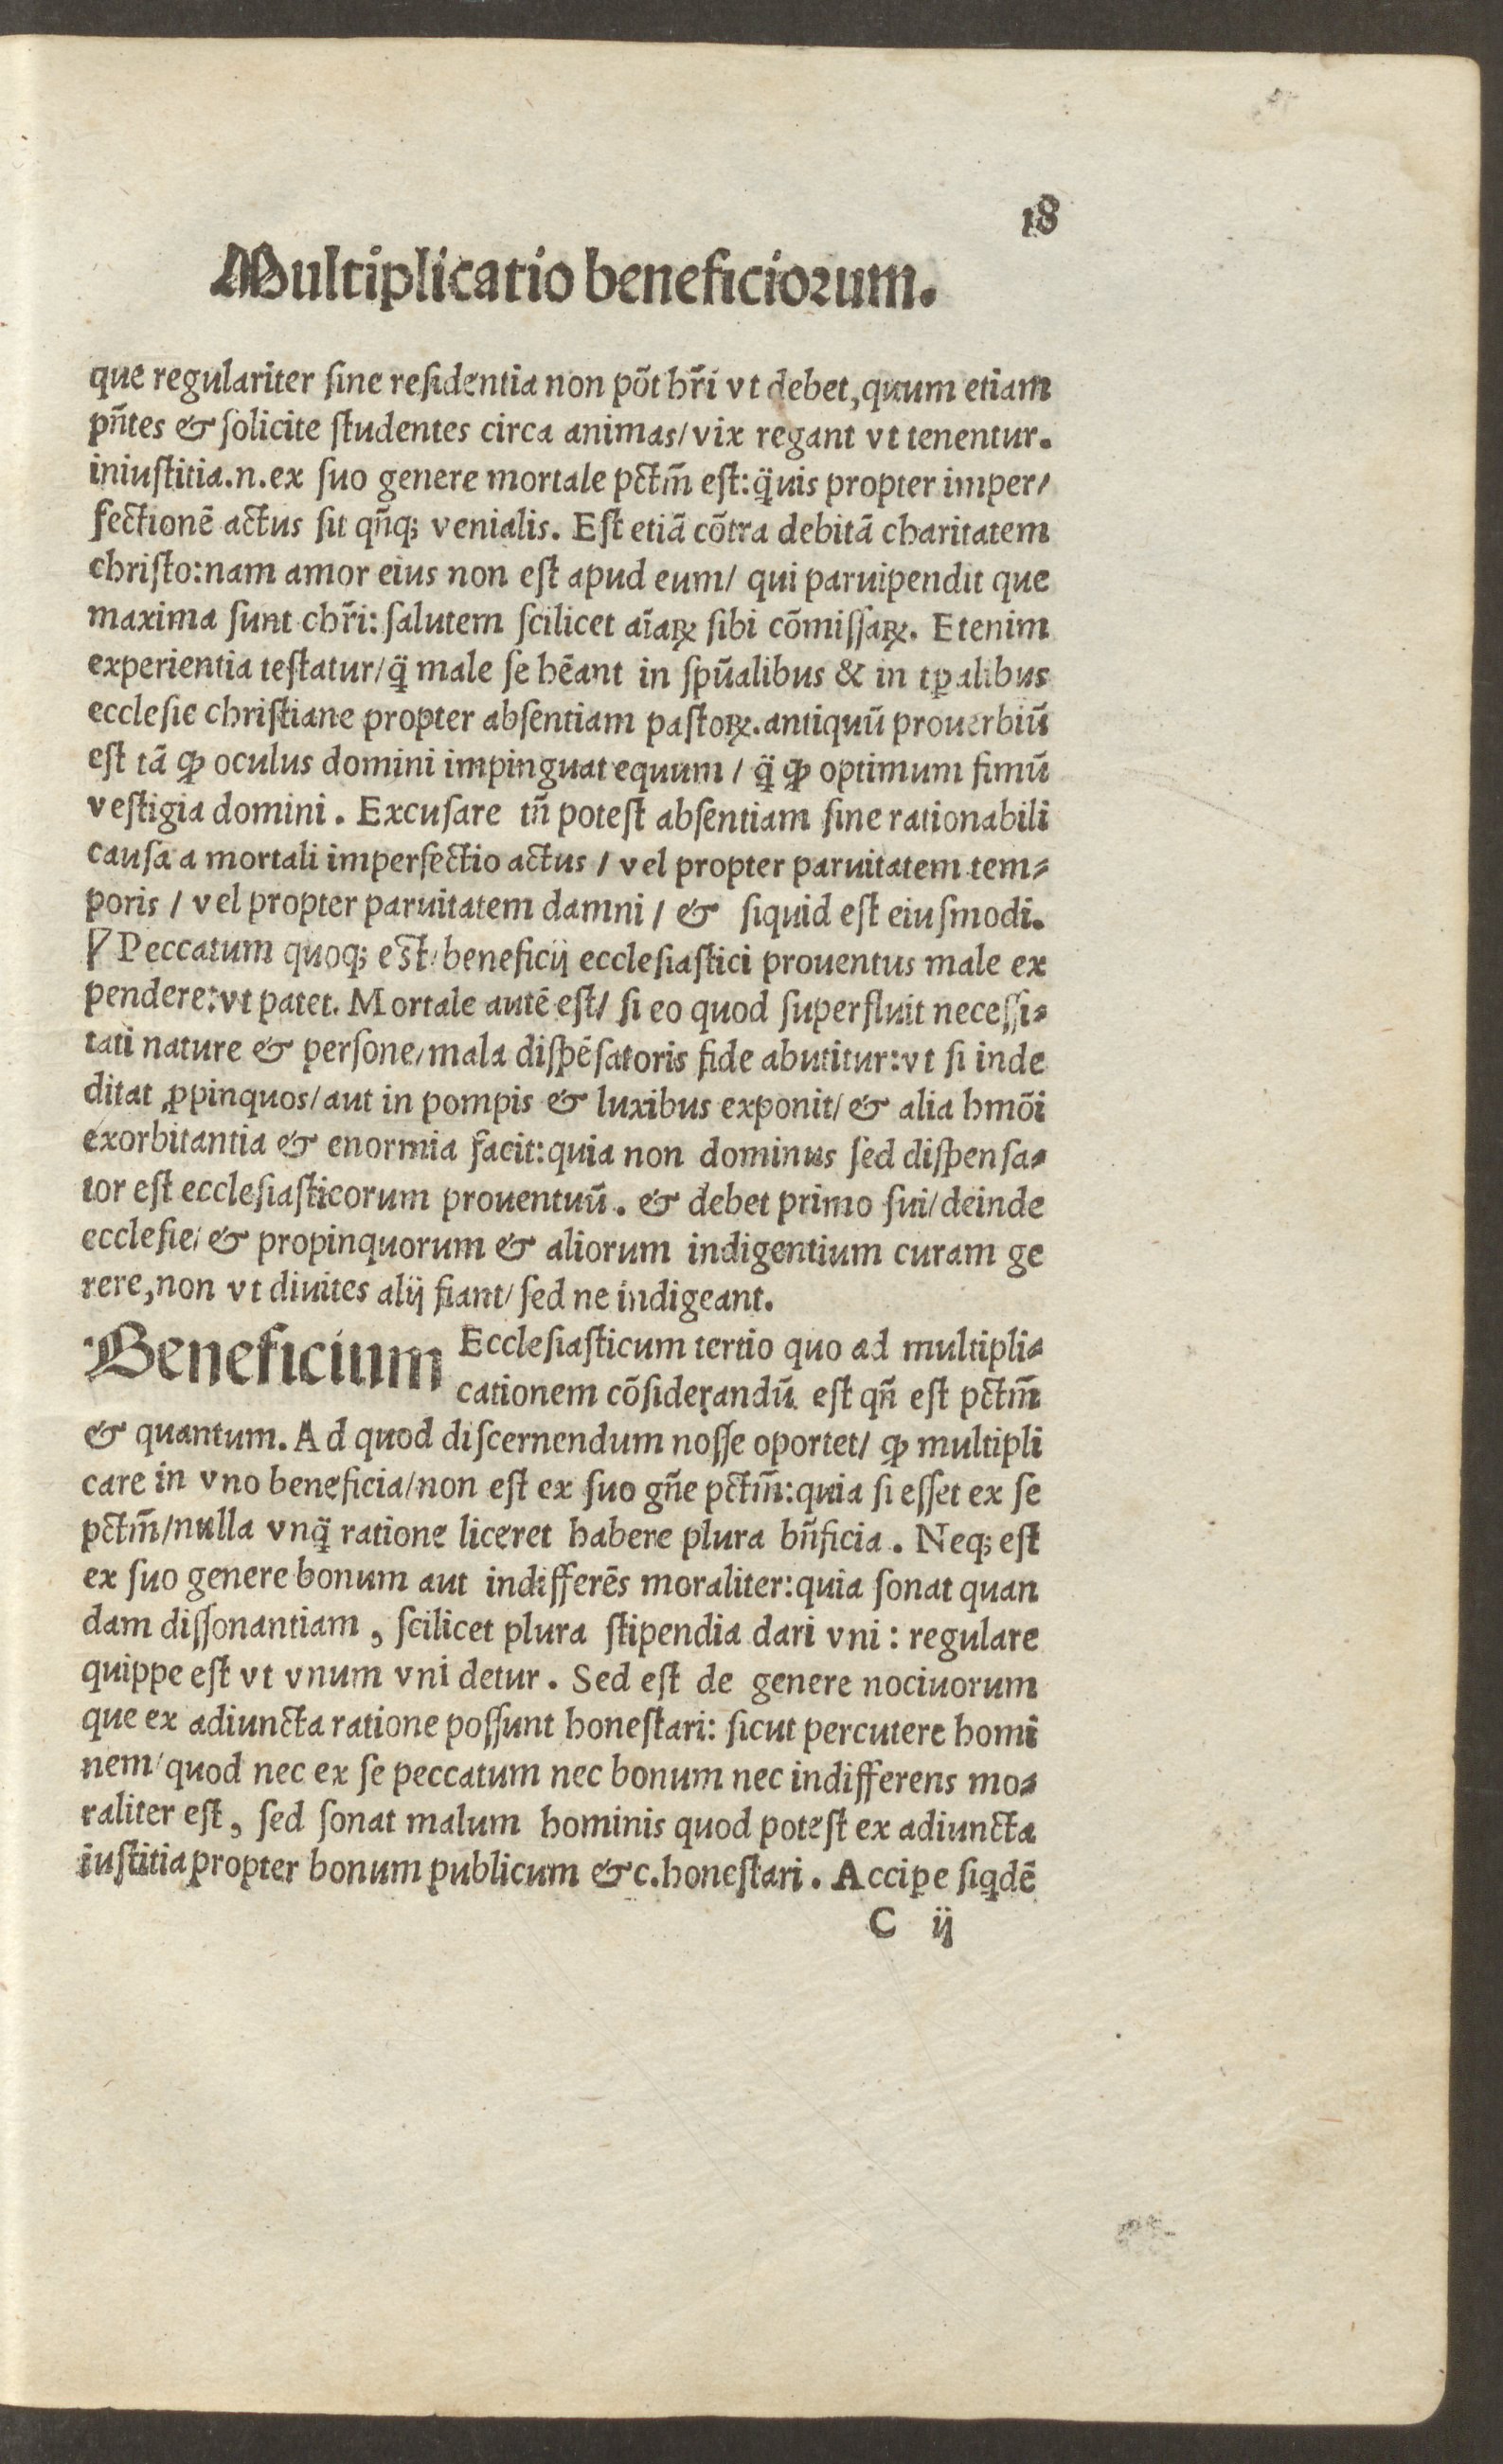 18
Multiplicatio beneficiorum.
que regulariter ſine reſidentia non põt hr̃i vt debet, quum etiam
pñtes & ſolicite ſtudentes circa animas/vix regant vt tenentur.
iniuſtitia.n.ex ſuo genere mortale pctm̃ eſt:q̃uis propter imper/
fectionẽ actus ſit qñq; venialis. Eſt etiã cõtra debitã charitatem
chriſto:nam amor eius non eſt apud eum/ qui paruipendit que
maxima ſunt chr̃i: ſalutem ſcilicet aĩaꝝ ſibi cõmiſſaꝝ. Etenim
experientia teſtatur/q̃ male ſe hẽant in ſpũalibus & in tꝑalibus
eccleſie chriſtiane propter abſentiam paſtoꝝ.antiquũ prouerbiũ
eſt tã ꝙ oculus domini impinguat equum / q̃ ꝙ optimum fimũ
veſtigia domini. Excuſare tñ poteſt abſentiam ſine rationabili
cauſa a mortali imperfectio actus / vel propter paruitatem tem⸗
poris / vel propter paruitatem damni / & ſiquid eſt eiuſmodi.
Peccatum quoq; eſt/beneficij eccleſiaſtici prouentus male ex
pendere:vt patet. Mortale autẽ eſt/ ſi eo quod ſuperfluit neceſſi⸗
tati nature & perſone/mala diſpẽſatoris fide abutitur:vt ſi inde
ditat ꝓpinquos/aut in pompis & luxibus exponit/& alia hmõi
exorbitantia & enormia facit:quia non dominus ſed diſpenſa⸗
tor eſt eccleſiaſticorum prouentuũ. & debet primo ſui/deinde
eccleſie/ & propinquorum & aliorum indigentium curam ge
rere, non vt diuites alij fiant/ſed ne indigeant.
Beneficium Eccleſiaſticum tertio quo ad multipli⸗
cationem cõſiderandũ eſt qñ eſt pctm̃
& quantum. Ad quod diſcernendum noſſe oportet/ ꝙ multipli
care in vno beneficia/non eſt ex ſuo gñe pctm̃:quia ſi eſſet ex ſe
pctm̃/nulla vnq̃ ratione liceret habere plura bñficia. Neq; eſt
ex ſuo genere bonum aut indifferẽs moraliter:quia ſonat quan
dam diſſonantiam, ſcilicet plura ſtipendia dari vni: regulare
quippe eſt vt vnum vni detur. Sed eſt de genere nociuorum
que ex adiuncta ratione poſſunt honeſtari: ſicut percutere homi
nem/quod nec ex ſe peccatum nec bonum nec indifferens mo⸗
raliter eſt, ſed ſonat malum hominis quod poteſt ex adiuncta
iuſtitia propter bonum publicum &c.honeſtari. Accipe ſiqdẽ
C ij